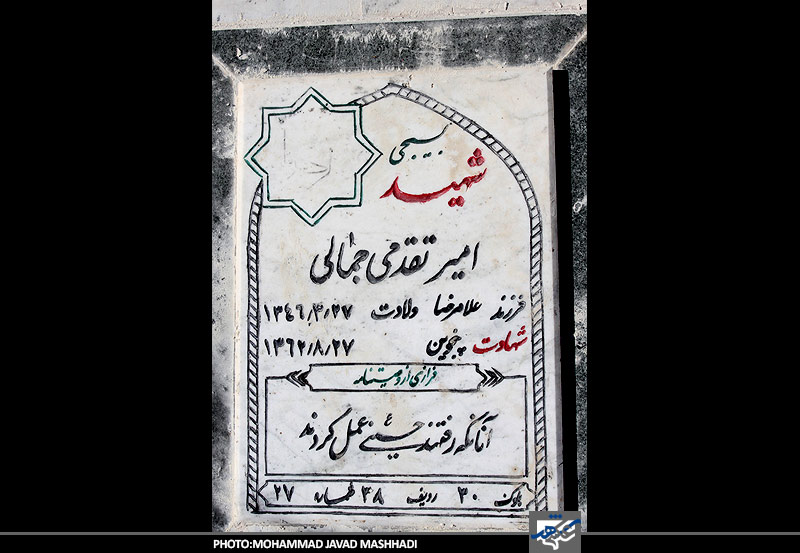 بسیجی
شهید
امیر تقدمی جمالی
فرزند غلامرضا ولادت ۱۳٤٦/۳/۲۷
شهادت پنجوین ۱۳٦۲/۸/۲۷
فرازی از وصیتنامه
آنانکه رفتند حسینی عمل کردند
بلوک ۳۰ ردیف ۳۸ شماره ۲۷
PHOTO:MOHAMMAD JAVAD MASHHADI